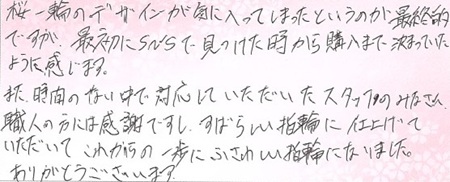 桜一輪のデザインが気に入ってしまったというのが最終的
ですが、最初にSNSで見つけた時から購入まで決まっていた
ように感じます。
また、時間のない中で対応していただいたスタッフのみなさん、
職人の方には感謝ですし、すばらしい指輪に仕上げて
いただいて これからの一歩にふさわしい指輪になりました。
ありがとうございます。